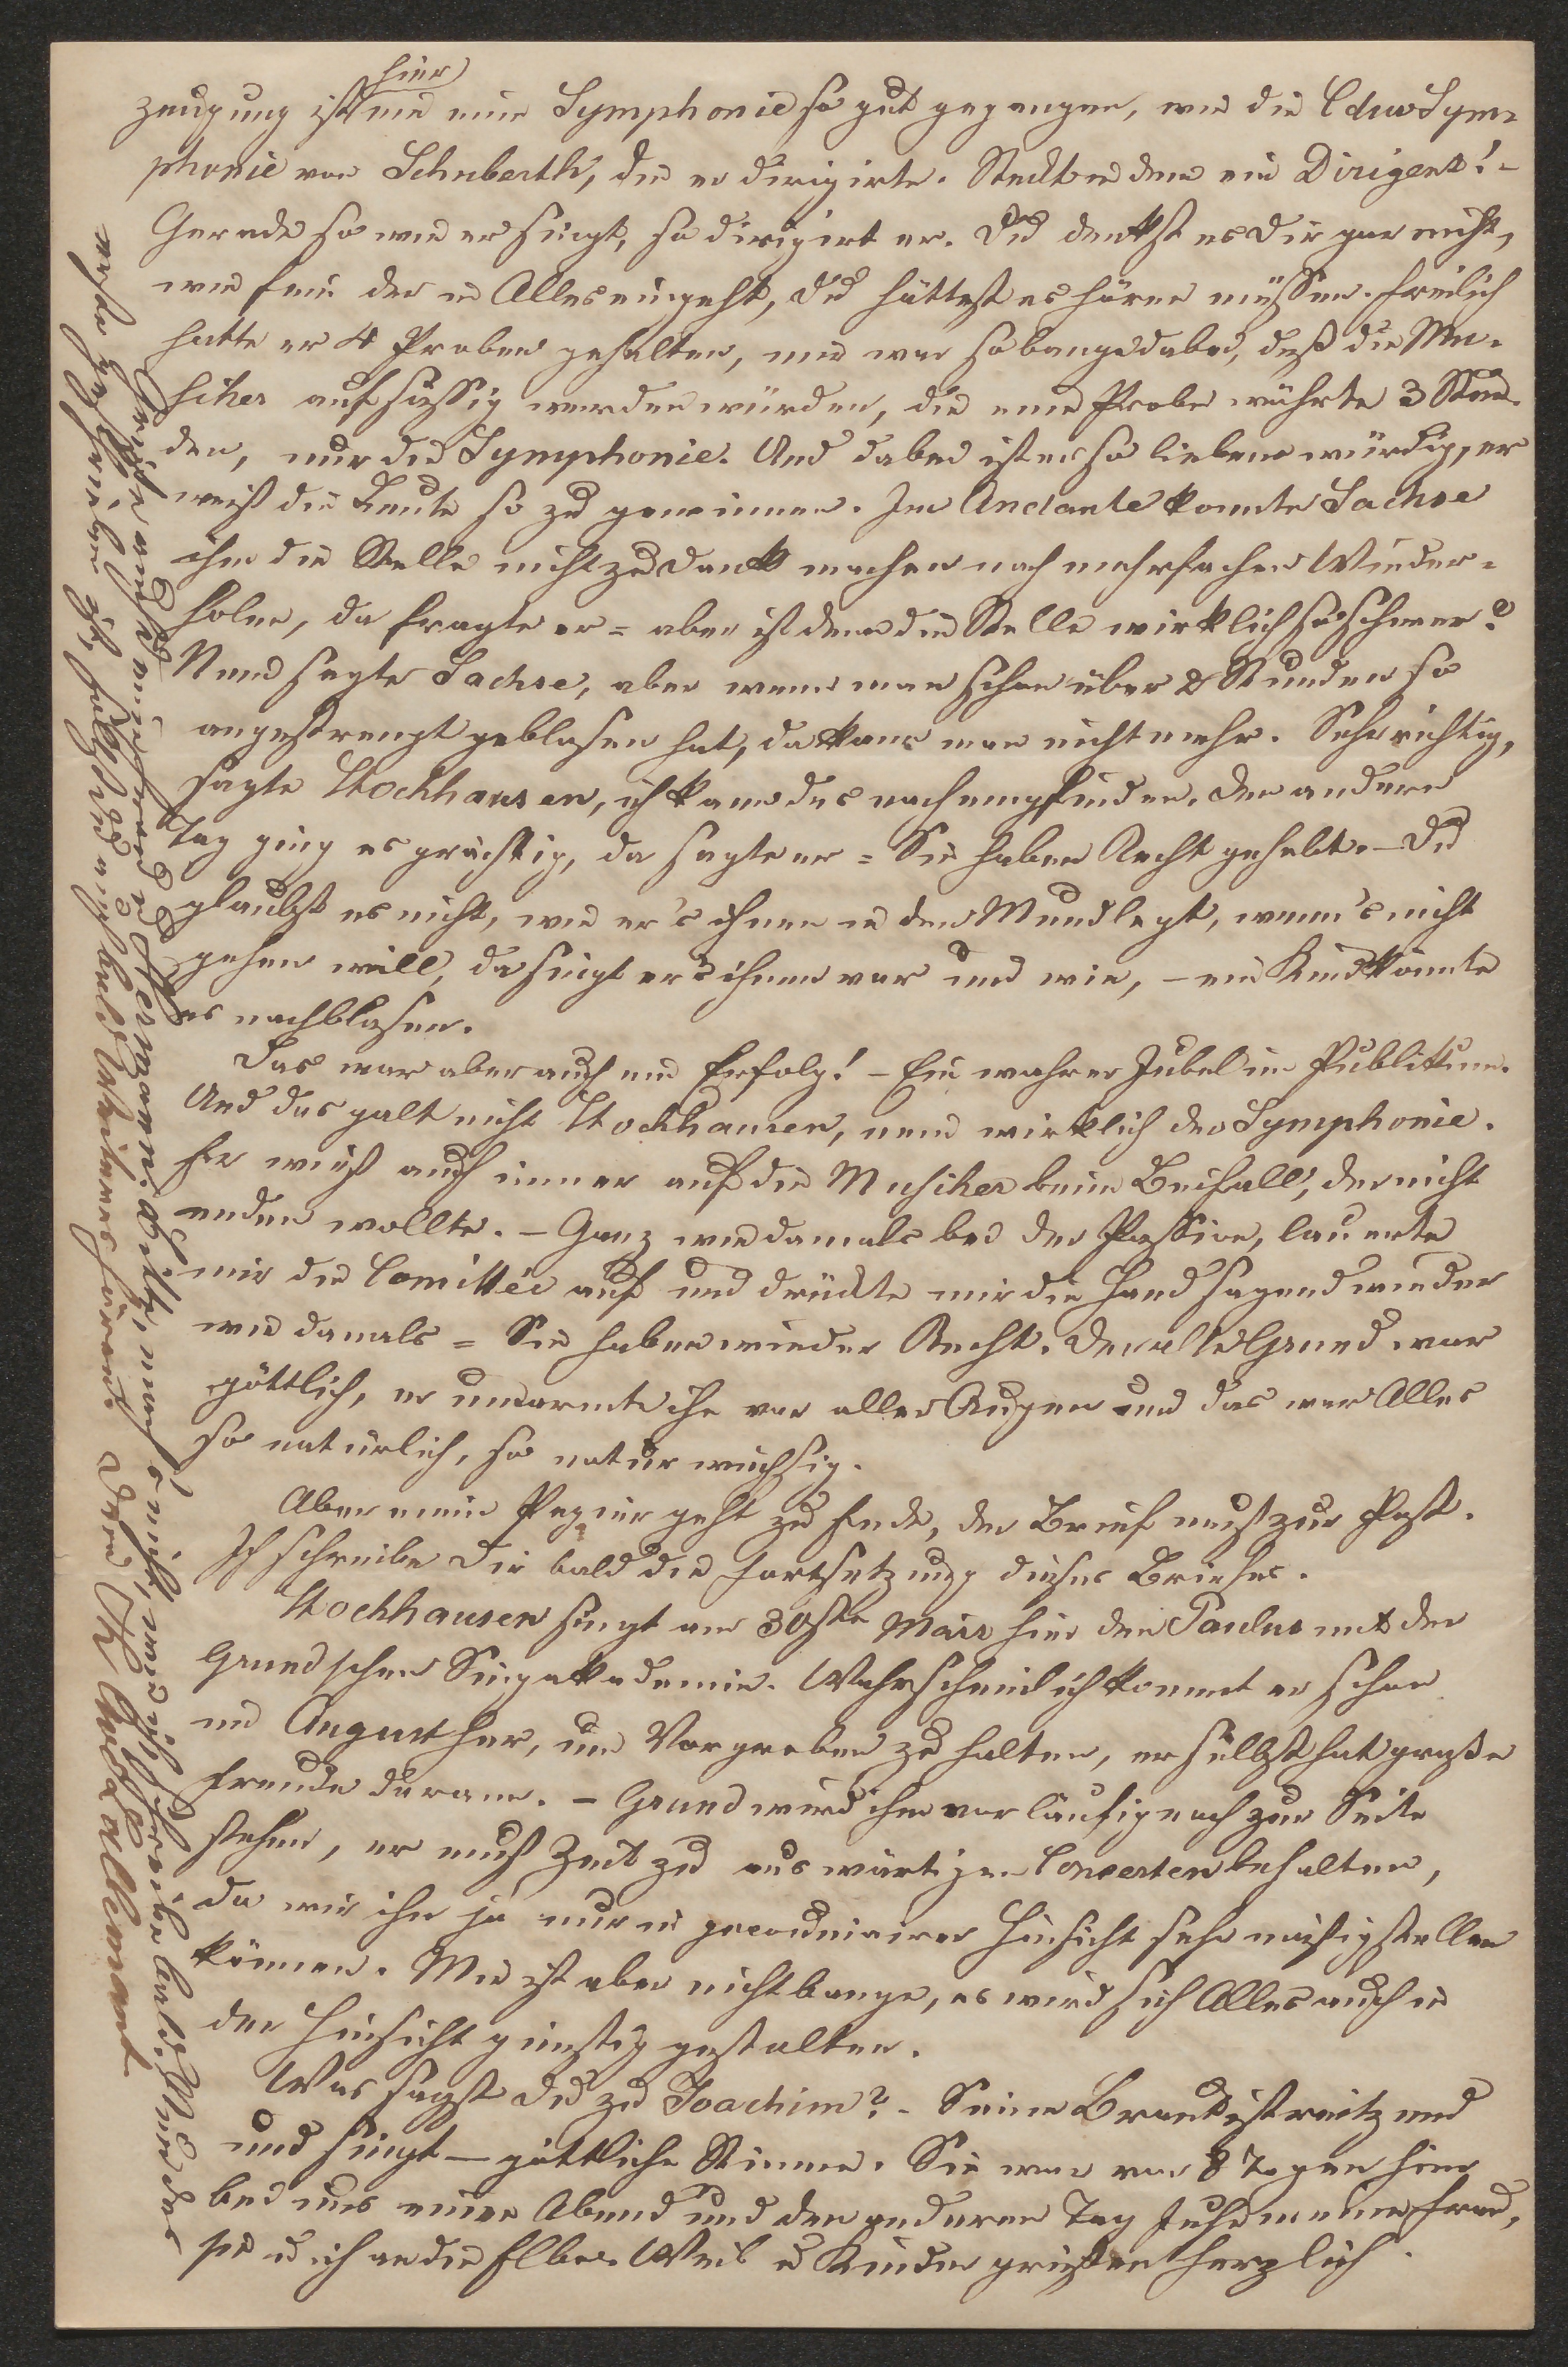 hier
zeugung ist nie eine Symphonie so gut gegangen, wie die C dur Sym-
phonie von Schuberth, die er dirigirte. Steckt in dem ein Dirigent! –
Gerade so wie er singt, so dirigirt er. Du denkst es Dir gar nicht,
wie fein der in Alles eingeht, Du hättest es hören müssen. Freilich
hatte er 4 Proben gehalten, mir war so bange dabei, daß die Mu-
siker aufsässig werden würden, die eine Probe währte 3 Stun-
den, nur die Symphonie. Und dabei ist er so liebenswürdig, er
weiß die Leute so zu gewinnen. Im Andante konnte Sachse
ihm die Stelle nicht zu Dank machen nach mehrfachen Wieder-
holen, da fragte er = aber ist denn die Stelle wirklich so schwer?
Nein sagte Sachse, aber wenn man schon über 2 Stunden so
angestrengt geblasen hat, da kann man nicht mehr. Sehr richtig,
sagte Stockhausen, ich kann das nachempfinden. Den andern
Tag ging es prächtig, da sagte er = Sie haben Recht gehabt. – Du
glaubst es nicht, wie er's ihnen in den Mund legt, wenn's nicht
gehen will, da singt er's ihnen vor und wie, – ein Kind könnte
es nachblasen.
Das war aber auch ein Erfolg! – Ein wahrer Jubel im Publikum.
Und das galt nicht Stockhausen, nein wirklich der Symphonie.
Er wies auch immer auf die Musiker beim Beifall, der nicht
enden wollte. – Ganz wie damals bei der Passion, lauerte
mir die Comittée auf und drückte mir die Hand sagend wieder
wie damals = Sie haben wieder Recht. Der alte Grund war
göttlich, er umarmte ihn vor aller Augen und das war Alles
so natürlich, so naturwüchsig.
Aber mein Papier geht zu Ende, der Brief muß zur Post.
Ich schreibe Dir bald die Fortsetzung dieses Briefes.
Stockhausen singt am 30ste März hier den Paulus mit der
Grundschen Singakademie. Wahrscheinlich kommt er schon
im August her, um Vorproben zu halten, er selbst hat große
Freude daran. – Grund wird ihm vorläufig noch zur Seite
stehen, er muß Zeit zu auswärtigen Concerten behalten,
da wir ihn ja nur in pecouniairer Hinsicht sehr mäßig stellen
können. Mir ist aber nicht bange, es wird sich Alles auch in
der Hinsicht günstig gestalten.
Was sagst Du zu Joachim? – Seine Braut ist reitzend
und singt – göttliche Stimme. Sie war vor 8 Tagen hier
bei uns einen Abend und den anderen Tag fuhr meine Frau,
sie u ich an die Elbe. Weib u Kinder grüßen herzlich.
Grüße auch Deinen Freund Hermann. Bitte, mach's nicht, wie ich, schreibe bald. Wenn das
erste geschrieben ist, sollst Du auch bald Weiteres hören. Dein Th Avé Lallemant